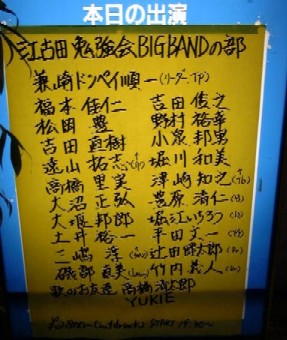 本日の出演
江古田 勉強会 BIG BANDの部
韮崎ドンペイ順一(リーダー,Tp)
福本 佳仁 吉田 俊之
松岡 豊 野村 裕幸
吉田 直樹 小泉 邦男
遠山 拓志 堀川 和美
高橋 里実 津崎 知之(Tb)
大沼 正弘 豊原 清仁
大堀 邦郎 堀江いちろう
土井 裕一 平田 文一
三嶋 淳 辻田 錦太郎
磯部 直美 竹内 義人
歌のお友達 高橋 浩太郎
YUKIE
START 19:30~